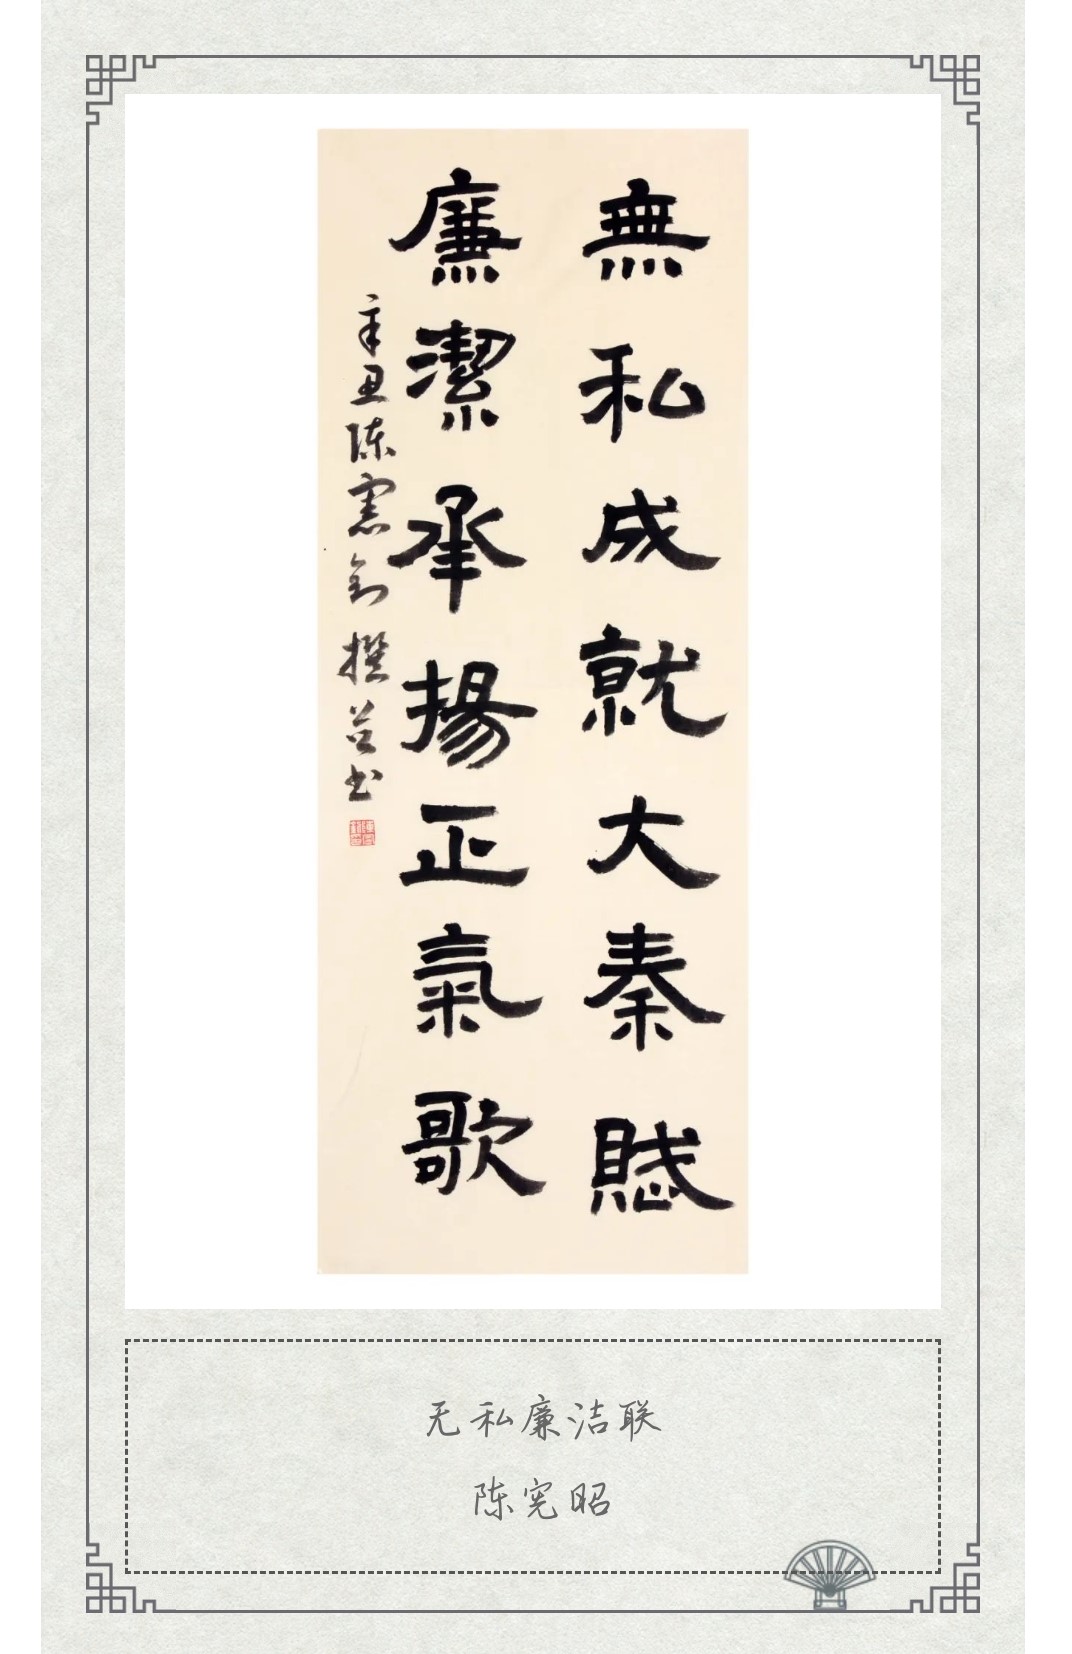 無私成就大秦賦
廉潔承揚正氣歌
辛丑陈憲钊撰并书
无私廉洁联
陈宪昭